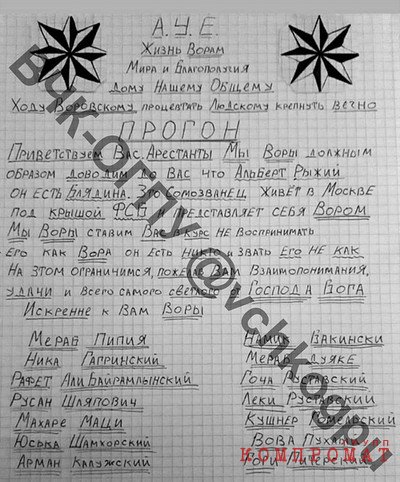 А.У.Е.
Жизнь Ворам
Мира и Благополучия
Дому Нашему Общему
Ходу Воровскому процветать Людскому крепнуть вечно
ПРОГОН
Приветствуем Вас Арестанты Мы Воры должным
образом доводим до Вас что Альберт Рыжий
он есть Блядина. Это самозванец живёт в Москве
под крышой ФСБ и представляет себя Вором
Мы Воры ставим Вас в курс не воспринимать
Его как Вора он есть никто и звать Его не как
На этом ограничимся, пожелав Вам Взаимопонимания,
удачи и всего самого светлого от Господа Бога
Искренне к Вам Воры
Мераб Пипия
Ника Гапринский
Рафет Али Байрамлынский
Русан Шляпович
Махаре Маци
Юська Шамхорский
Арман Калужский
Намик Бакински
Мераб Дуяке
Гоча Руставский
Леки Руставский
Кушнер Гомельский
Вова Пухлый
Гори Питерский
ВЧК-ОГПУ @vchkogpu
КОМПРОМАТ